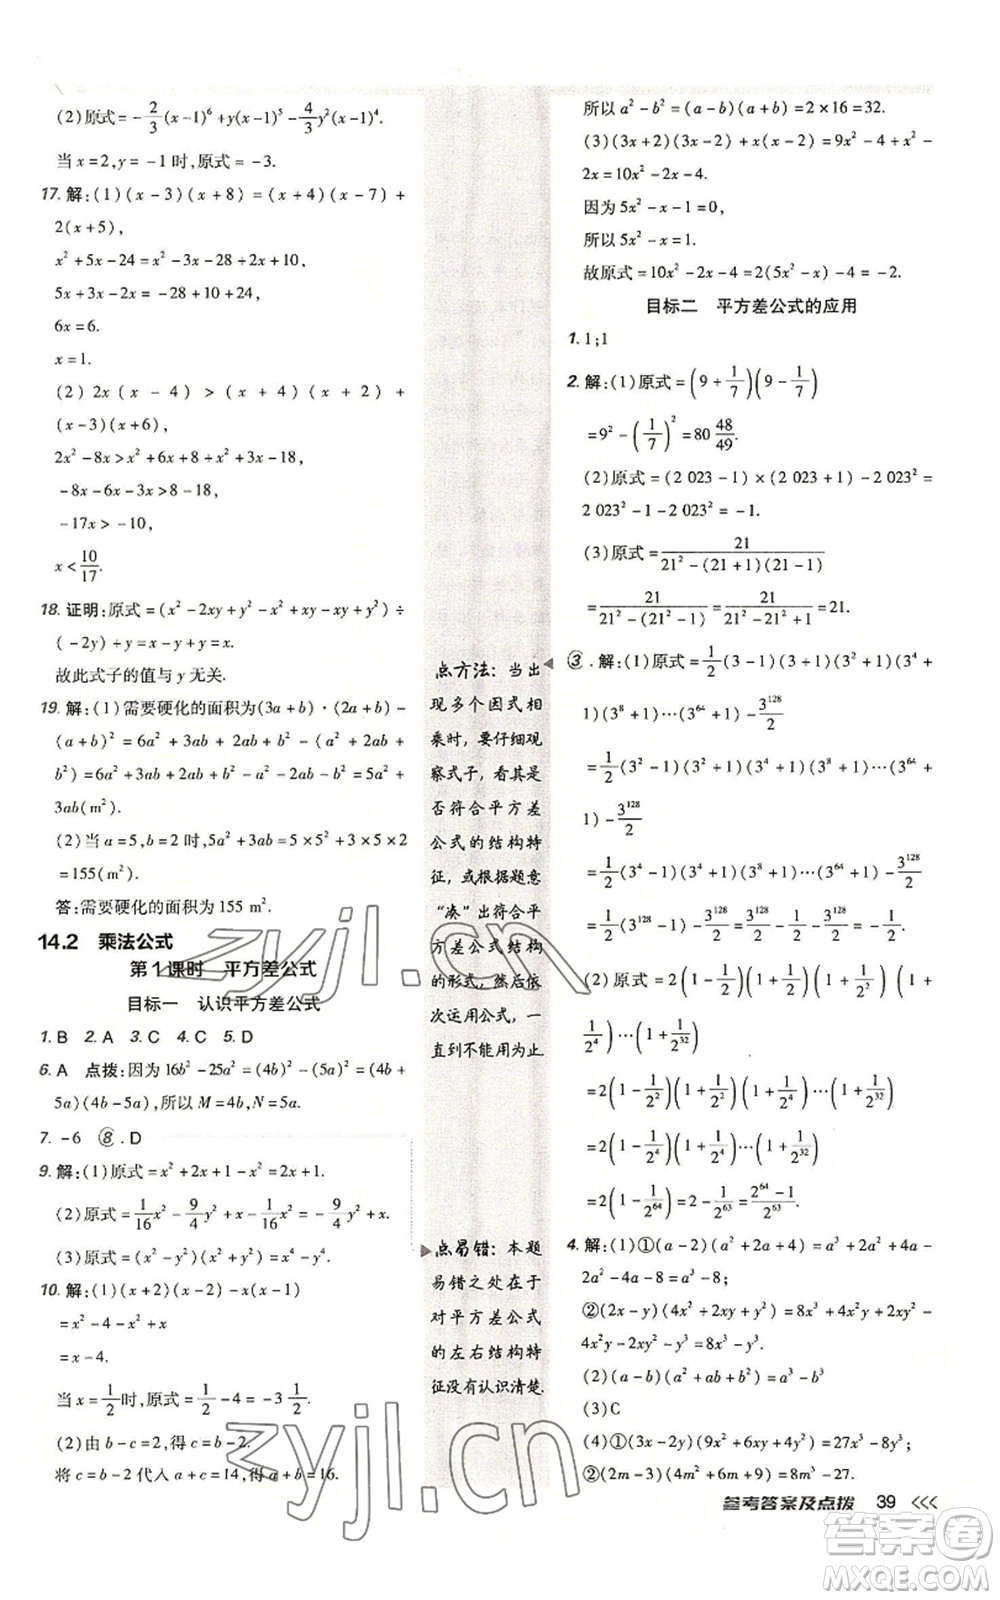 (2)原式 = -2/3(x-1)⁶ + y(x-1)⁵ - 4/3y²(x-1)⁴.
当 x=2,y=-1时,原式 = -3.
17. 解:(1)(x-3)(x+8)=(x+4)(x-7)+
2(x+5),
x²+5x-24=x²-3x-28+2x+10,
5x+3x-2x=-28+10+24,
6x=6.
x=1.
(2)2x(x-4)>(x+4)(x+2)+
(x-3)(x+6),
2x²-8x>x²+6x+8+x²+3x-18,
-8x-6x-3x>8-18,
-17x>-10,
x<10/17.
18. 证明:原式=(x²-2xy+y²-x²+xy-xy+y²)÷
(-2y)+y=x-y+y=x.
故此式子的值与 y 无关.
19. 解:(1)需要硬化的面积为(3a+b)·(2a+b)-
(a+b)²=6a²+3ab+2ab+b²-(a²+2ab+
b²)=6a²+5ab+b²-a²-2ab-b²=5a²+
3ab(m²).
(2)当 a=5,b=2 时,5a²+3ab=5×5²+3×5×2
=155(m²).
答:需要硬化的面积为 155 m².
14.2 乘法公式
第1课时 平方差公式
目标一 认识平方差公式
1. B 2. A 3. C 4. C 5. D
6. A 点拨:因为16b²-25a²=(4b)²-(5a)²=(4b+
5a)(4b-5a),所以 M=4b,N=5a.
7. -6 ⑧. D
9. 解:(1)原式=x²+2x+1-x²=2x+1.
(2)原式=1/16x²-9/4y²+x-1/16x²+9/4y²=x.
(3)原式=(x²-y²)(x²+y²)=x⁴-y⁴.
10. 解:(1)(x+2)(x-2)-x(x-1)
=x²-4-x²+x
=x-4.
当 x=1/2时,原式=1/2-4=-3 1/2.
(2)由 b-c=2,得 c=b-2.
将 c=b-2代入 a+c=14,得 a+b=16.
点方法:当出
现多个因式相
乘时,要仔细观
察式子,看其是
否符合平方差
公式的结构特
征,或根据题意
“凑”出符合平
方差公式结构
的形式,然后依
次运用公式,一
直到不能用为止.
点易错:本题
易错之处在于
对平方差公式
的左右结构特
征没有认识清楚.
所以 a²-b²=(a-b)(a+b)=2×16=32.
(3)(3x+2)(3x-2)+x(x-2)=9x²-4+x²-
2x=10x²-2x-4.
因为 5x²-x-1=0,
所以 5x²-x=1.
故原式=10x²-2x-4=2(5x²-x)-4=-2.
目标二 平方差公式的应用
1. 1;1
2. 解:(1)原式=(9+1/7)(9-1/7)
=9²-(1/7)²=80 48/49.
(2)原式=(2 023-1)×(2 023+1)-2 023²=
2 023²-1-2 023²=-1.
(3)原式=21/(21²-(21+1)(21-1))
=21/(21²-(21²-1))=21/(21²-21²+1)=21.
③. 解:(1)原式=1/2(3-1)(3+1)(3²+1)(3⁴+
1)(3⁸+1)…(3⁶⁴+1)-3¹²⁸/2
=1/2(3²-1)(3²+1)(3⁴+1)(3⁸+1)…(3⁶⁴+
1)-3¹²⁸/2
=1/2(3⁴-1)(3⁴+1)(3⁸+1)…(3⁶⁴+1)-3¹²⁸/2
=1/2(3¹²⁸-1)-3¹²⁸/2=3¹²⁸/2-1/2-3¹²⁸/2=-1/2.
(2)原式=2(1-1/2)(1+1/2)(1+1/2²)(1+
1/2⁴)…(1+1/2³²)
=2(1-1/2²)(1+1/2²)(1+1/2⁴)…(1+1/2³²)
=2(1-1/2⁴)(1+1/2⁴)…(1+1/2³²)
=2(1-1/2⁶⁴)=2-1/2⁶³=(2⁶⁴-1)/2⁶³.
4. 解:(1)①(a-2)(a²+2a+4)=a³+2a²+4a-
2a²-4a-8=a³-8;
②(2x-y)(4x²+2xy+y²)=8x³+4x²y+2xy²-
4x²y-2xy²-y³=8x³-y³.
(2)(a-b)(a²+ab+b²)=a³-b³
(3)C
(4)①(3x-2y)(9x²+6xy+4y²)=27x³-8y³;
②(2m-3)(4m²+6m+9)=8m³-27.
参考答案及点拨 39
zyjl.cn
zyjl.cn
答案卷
MXQE.COM